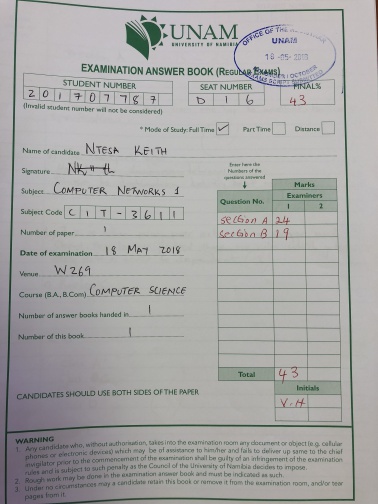 UNAM
UNIVERSITY OF NAMIBIA
OFFICE OF THE
UNAM
16 -05- 2018
EXAMINATION ANSWER BOOK (REGULAR EXAMS)
STUDENT NUMBER SEAT NUMBER FINAL%
201707787 D16 43
(Invalid student number will not be considered)
* Mode of Study: Full Time ✓ Part Time Distance
Name of candidate NTESA KEITH
Signature
Enter here the Numbers of the questions answered
Subject COMPUTER NETWORKS 1
Marks
Question No. Examiners
1 2
Subject Code CIT-3611
Section A 24
Number of paper 1
Section B 19
Date of examination 18 MAY 2018
Venue W269
Course (B.A., B.Com) COMPUTER SCIENCE
Number of answer books handed in 1
Number of this book 1
Total 43
CANDIDATES SHOULD USE BOTH SIDES OF THE PAPER
Initials
V.H
WARNING
1. Any candidate who, without authorisation, takes into the examination room any document or object (e.g. cellular
phones or electronic devices) which may be of assistance to him/her and fails to deliver up same to the chief
invigilator prior to the commencement of the examination shall be guilty of an infringement of the examination
rules and is subject to such penalty as the Council of the University of Namibia decides to impose.
2. Rough work may be done in the examination answer book and must be indicated as such.
3. Under no circumstances may a candidate retain this book or remove it from the examination room, and/or tear
pages from it.